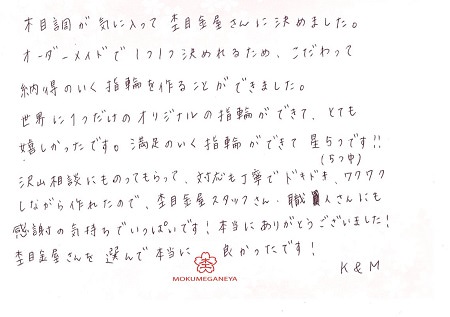 木目調が気に入って杢目金屋さんに決めました。
オーダーメイドで1つ1つ決めれるため、こだわって
納得のいく指輪を作ることができました。
世界に1つだけのオリジナルの指輪ができて、とても
嬉しかったです。満足のいく指輪ができて星5つです!!
(5つ中)
沢山相談にものってもらって、対応も丁寧でドキドキ、ワクワク
しながら作れたので、杢目金屋スタッフさん、職人さんにも
感謝の気持ちでいっぱいです!本当にありがとうございました!
杢目金屋さんを選んで本当に良かったです!
MOKUMEGANEYA
K & M